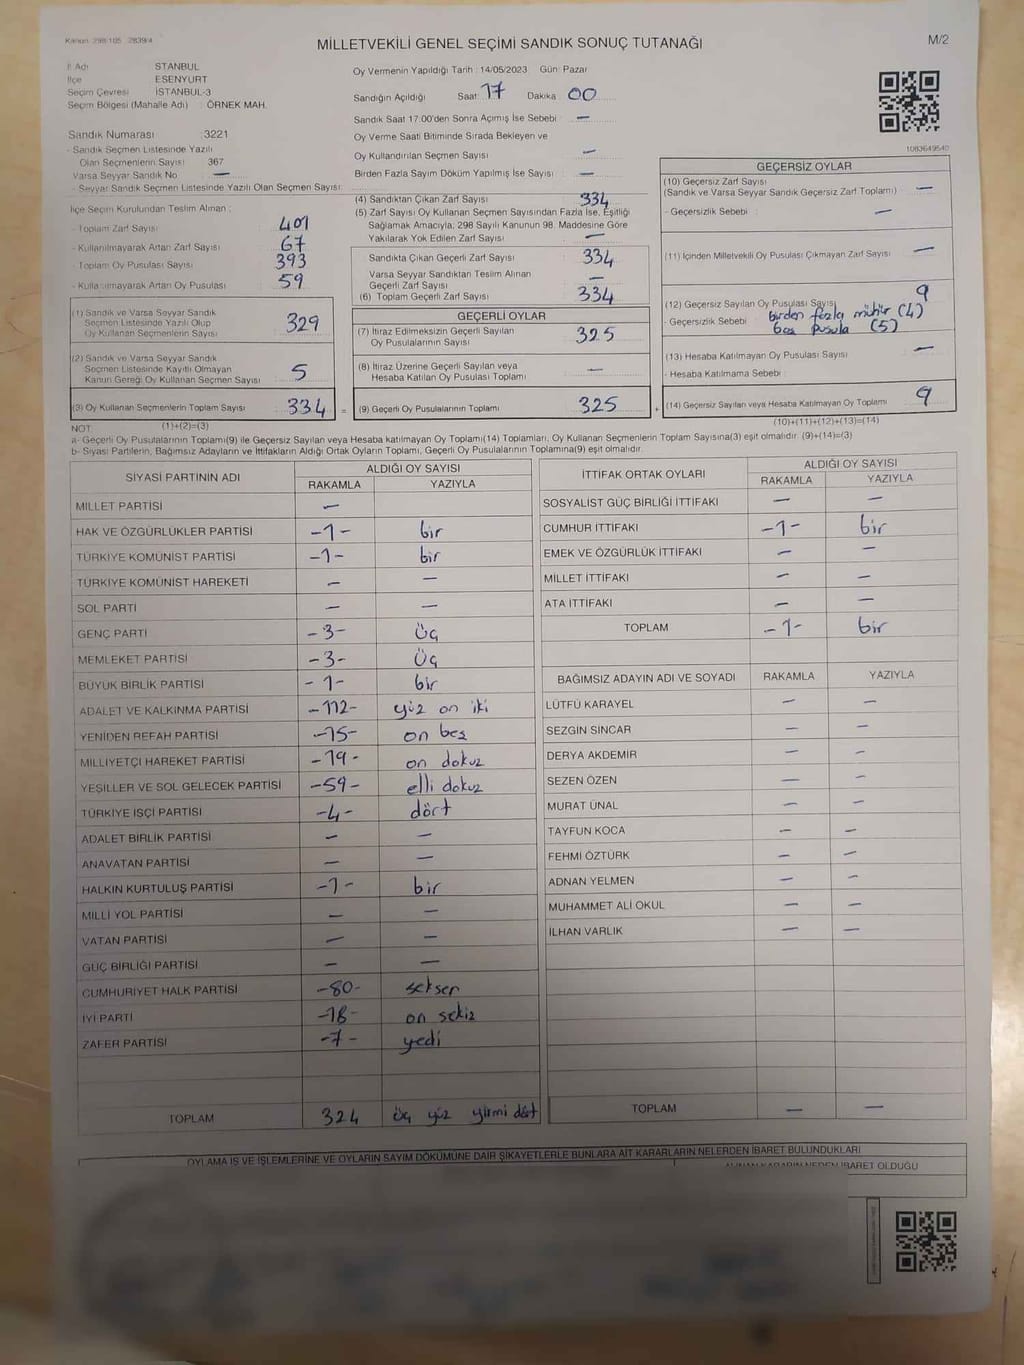 Kanun 298/105 2839/4
MİLLETVEKİLİ GENEL SEÇİMİ SANDIK SONUÇ TUTANAĞI
M/2
İl Adı STANBUL
İlçe ESENYURT
Seçim Çevresi İSTANBUL-3
Seçim Bölgesi (Mahalle Adı) : ÖRNEK MAH.
Sandık Numarası :3221
- Sandık Seçmen Listesinde Yazılı
Olan Seçmenlerin Sayısı 367
Varsa Seyyar Sandık No —
- Seyyar Sandık Seçmen Listesinde Yazılı Olan Seçmen Sayısı:
İlçe Seçim Kurulundan Teslim Alınan ;
- Toplam Zarf Sayısı 401
- Kullanılmayarak Artan Zarf Sayısı 67
- Toplam Oy Pusulası Sayısı 393
- Kullanılmayarak Artan Oy Pusulası 59
(1) Sandık ve Varsa Seyyar Sandık
Seçmen Listesinde Yazılı Olup
Oy Kullanan Seçmenlerin Sayısı 329
(2) Sandık ve Varsa Seyyar Sandık
Seçmen Listesinde Kayıtlı Olmayan
Kanun Gereği Oy Kullanan Seçmen Sayısı 5
(3) Oy Kullanan Seçmenlerin Toplam Sayısı 334 =
(1)+(2)=(3)
Oy Vermenin Yapıldığı Tarih : 14/05/2023 Gün: Pazar
Sandığın Açıldığı Saat: 17 Dakika 00
Sandık Saat 17:00'den Sonra Açımış İse Sebebi : —
Oy Verme Saati Bitiminde Sırada Bekleyen ve
Oy Kullandırılan Seçmen Sayısı —
Birden Fazla Sayım Döküm Yapılmış İse Sayısı : —
(4) Sandıktan Çıkan Zarf Sayısı 334
(5) Zarf Sayısı Oy Kullanan Seçmen Sayısından Fazla İse, Eşitliği
Sağlamak Amacıyla, 298 Sayılı Kanunun 98. Maddesine Göre
Yakılarak Yok Edilen Zarf Sayısı —
Sandıkta Çıkan Geçerli Zarf Sayısı 334
Varsa Seyyar Sandıktan Teslim Alınan
Geçerli Zarf Sayısı —
(6) Toplam Geçerli Zarf Sayısı 334
GEÇERLİ OYLAR
(7) İtiraz Edilmeksizin Geçerli Sayılan
Oy Pusulalarının Sayısı 325
(8) İtiraz Üzerine Geçerli Sayılan veya
Hesaba Katılan Oy Pusulası Toplamı —
(9) Geçerli Oy Pusulalarının Toplamı 325 +
1083649540
GEÇERSİZ OYLAR
(10) Geçersiz Zarf Sayısı
(Sandık ve Varsa Seyyar Sandık Geçersiz Zarf Toplamı) —
- Geçersizlik Sebebi : —
(11) İçinden Milletvekili Oy Pusulası Çıkmayan Zarf Sayısı —
(12) Geçersiz Sayılan Oy Pusulası Sayısı 9
- Geçersizlik Sebebi birden fazla mühür (4)
boş pusula (5)
(13) Hesaba Katılmayan Oy Pusulası Sayısı —
- Hesaba Katılmama Sebebi :
(14) Geçersiz Sayılan veya Hesaba Katılmayan Oy Toplamı 9
(10)+(11)+(12)+(13)=(14)
NOT
a- Geçerli Oy Pusulalarının Toplamı(9) ile Geçersiz Sayılan veya Hesaba katılmayan Oy Toplamı(14) Toplamları, Oy Kullanan Seçmenlerin Toplam Sayısına(3) eşit olmalıdır. (9)+(14)=(3)
b- Siyasi Partilerin, Bağımsız Adayların ve İttifakların Aldığı Ortak Oyların Toplamı, Geçerli Oy Pusulalarının Toplamına(9) eşit olmalıdır.
SİYASİ PARTİNİN ADI ALDIĞI OY SAYISI
RAKAMLA YAZIYLA
MİLLET PARTİSİ —
HAK VE ÖZGÜRLÜKLER PARTİSİ -1- bir
TÜRKİYE KOMÜNİST PARTİSİ -1- bir
TÜRKİYE KOMÜNİST HAREKETİ — —
SOL PARTİ — —
GENÇ PARTİ -3- üç
MEMLEKET PARTİSİ -3- üç
BÜYÜK BİRLİK PARTİSİ -1- bir
ADALET VE KALKINMA PARTİSİ -112- yüz on iki
YENİDEN REFAH PARTİSİ -15- on beş
MİLLİYETÇİ HAREKET PARTİSİ -19- on dokuz
YEŞİLLER VE SOL GELECEK PARTİSİ -59- elli dokuz
TÜRKİYE İŞÇİ PARTİSİ -4- dört
ADALET BİRLİK PARTİSİ — —
ANAVATAN PARTİSİ — —
HALKIN KURTULUŞ PARTİSİ -1- bir
MİLLİ YOL PARTİSİ — —
VATAN PARTİSİ — —
GÜÇ BİRLİĞİ PARTİSİ — —
CUMHURİYET HALK PARTİSİ -80- seksen
İYİ PARTİ -18- on sekiz
ZAFER PARTİSİ -7- yedi
TOPLAM 324 üç yüz yirmi dört
İTTİFAK ORTAK OYLARI ALDIĞI OY SAYISI
RAKAMLA YAZIYLA
SOSYALİST GÜÇ BİRLİĞİ İTTİFAKI — —
CUMHUR İTTİFAKI -1- bir
EMEK VE ÖZGÜRLÜK İTTİFAKI — —
MİLLET İTTİFAKI — —
ATA İTTİFAKI — —
TOPLAM -1- bir
BAĞIMSIZ ADAYIN ADI VE SOYADI RAKAMLA YAZIYLA
LÜTFÜ KARAYEL — —
SEZGİN SİNCAR — —
DERYA AKDEMİR — —
SEZEN ÖZEN — —
MURAT ÜNAL — —
TAYFUN KOCA — —
FEHMİ ÖZTÜRK — —
ADNAN YELMEN — —
MUHAMMET ALİ OKUL — —
İLHAN VARLIK — —
TOPLAM — —
OYLAMA İŞ VE İŞLEMLERİNE VE OYLARIN SAYIM DÖKÜMÜNE DAİR ŞİKAYETLERLE BUNLARA AİT KARARLARIN NELERDEN İBARET BULUNDUKLARI
ALINAN KARARIN NEDEN İBARET OLDUĞU